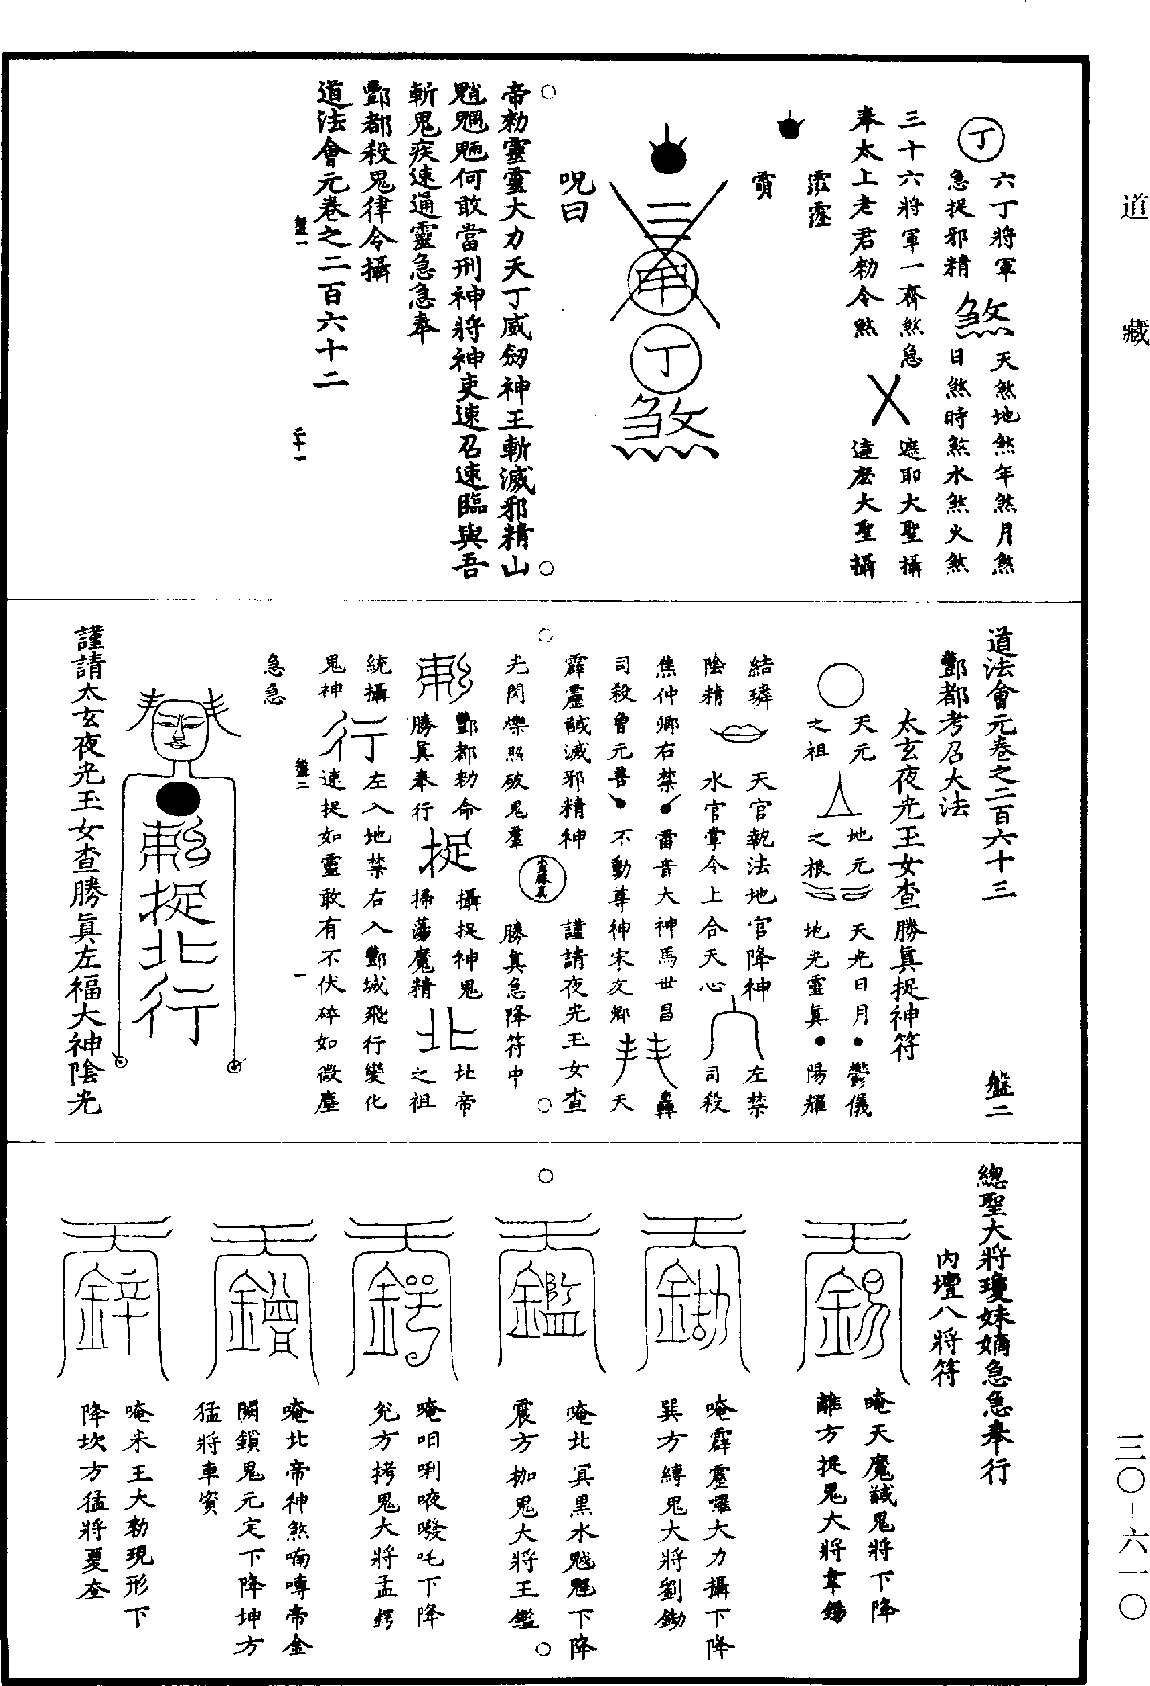 道藏
三〇－六一〇
丁
六丁將軍
急捉邪精
煞
天煞地煞年煞月煞
日煞時煞水煞火煞
三十六將軍一齊煞急
奉太上老君勑令煞
遮耶大聖攝
達麽大聖攝
甲
丁
煞
呪曰
帝勑靈靈大力天丁威劒神王斬滅邪精山
何敢當刑神將神吏速召速臨與吾
斬鬼疾速通靈急急奉
酆都殺鬼律令攝
道法會元卷之二百六十二
盤一
二十一
道法會元卷之二百六十三
盤二
酆都考召大法
太玄夜光玉女查勝眞捉神符
天元
之祖
地元
之根
天光日月
地光靈眞
鬱儀
陽耀
結璘
陰精
天官執法地官降神
水官掌令上合天心
左禁
司殺
焦仲卿右禁
司殺曾元善
雷音大神馬世昌
不動尊神宋友卿
轟
天
霹靂馘滅邪精神
光閃爍照破鬼羣
查勝眞
謹請夜光玉女查
勝眞急降符中
斬
酆都勑命
勝眞奉行
捉
攝捉神鬼
掃蕩魔精
北
北帝
之祖
統攝
鬼神
行
左入地禁右入酆城飛行變化
速捉如靈敢有不伏碎如微塵
急急
盤二
一
斬
捉
北
行
謹請太玄夜光玉女查勝眞左福大神陰光
總聖大將瓊妹嫡急急奉行
內壇八將符
錫
唵天魔馘鬼將下降
離方捉鬼大將韋錫
鋤
唵霹靂囉大力攝下降
巽方縛鬼大將劉鋤
鑑
唵北冥黑水下降
震方枷鬼大將王鑑
鍔
唵呬唎吱撥吒下降
兌方拷鬼大將孟鍔
鐕
唵北帝神煞喃嚩帝金
闕鎖鬼元定下降坤方
猛將車資
鋅
唵未王大勑現形下
降坎方猛將夏夅